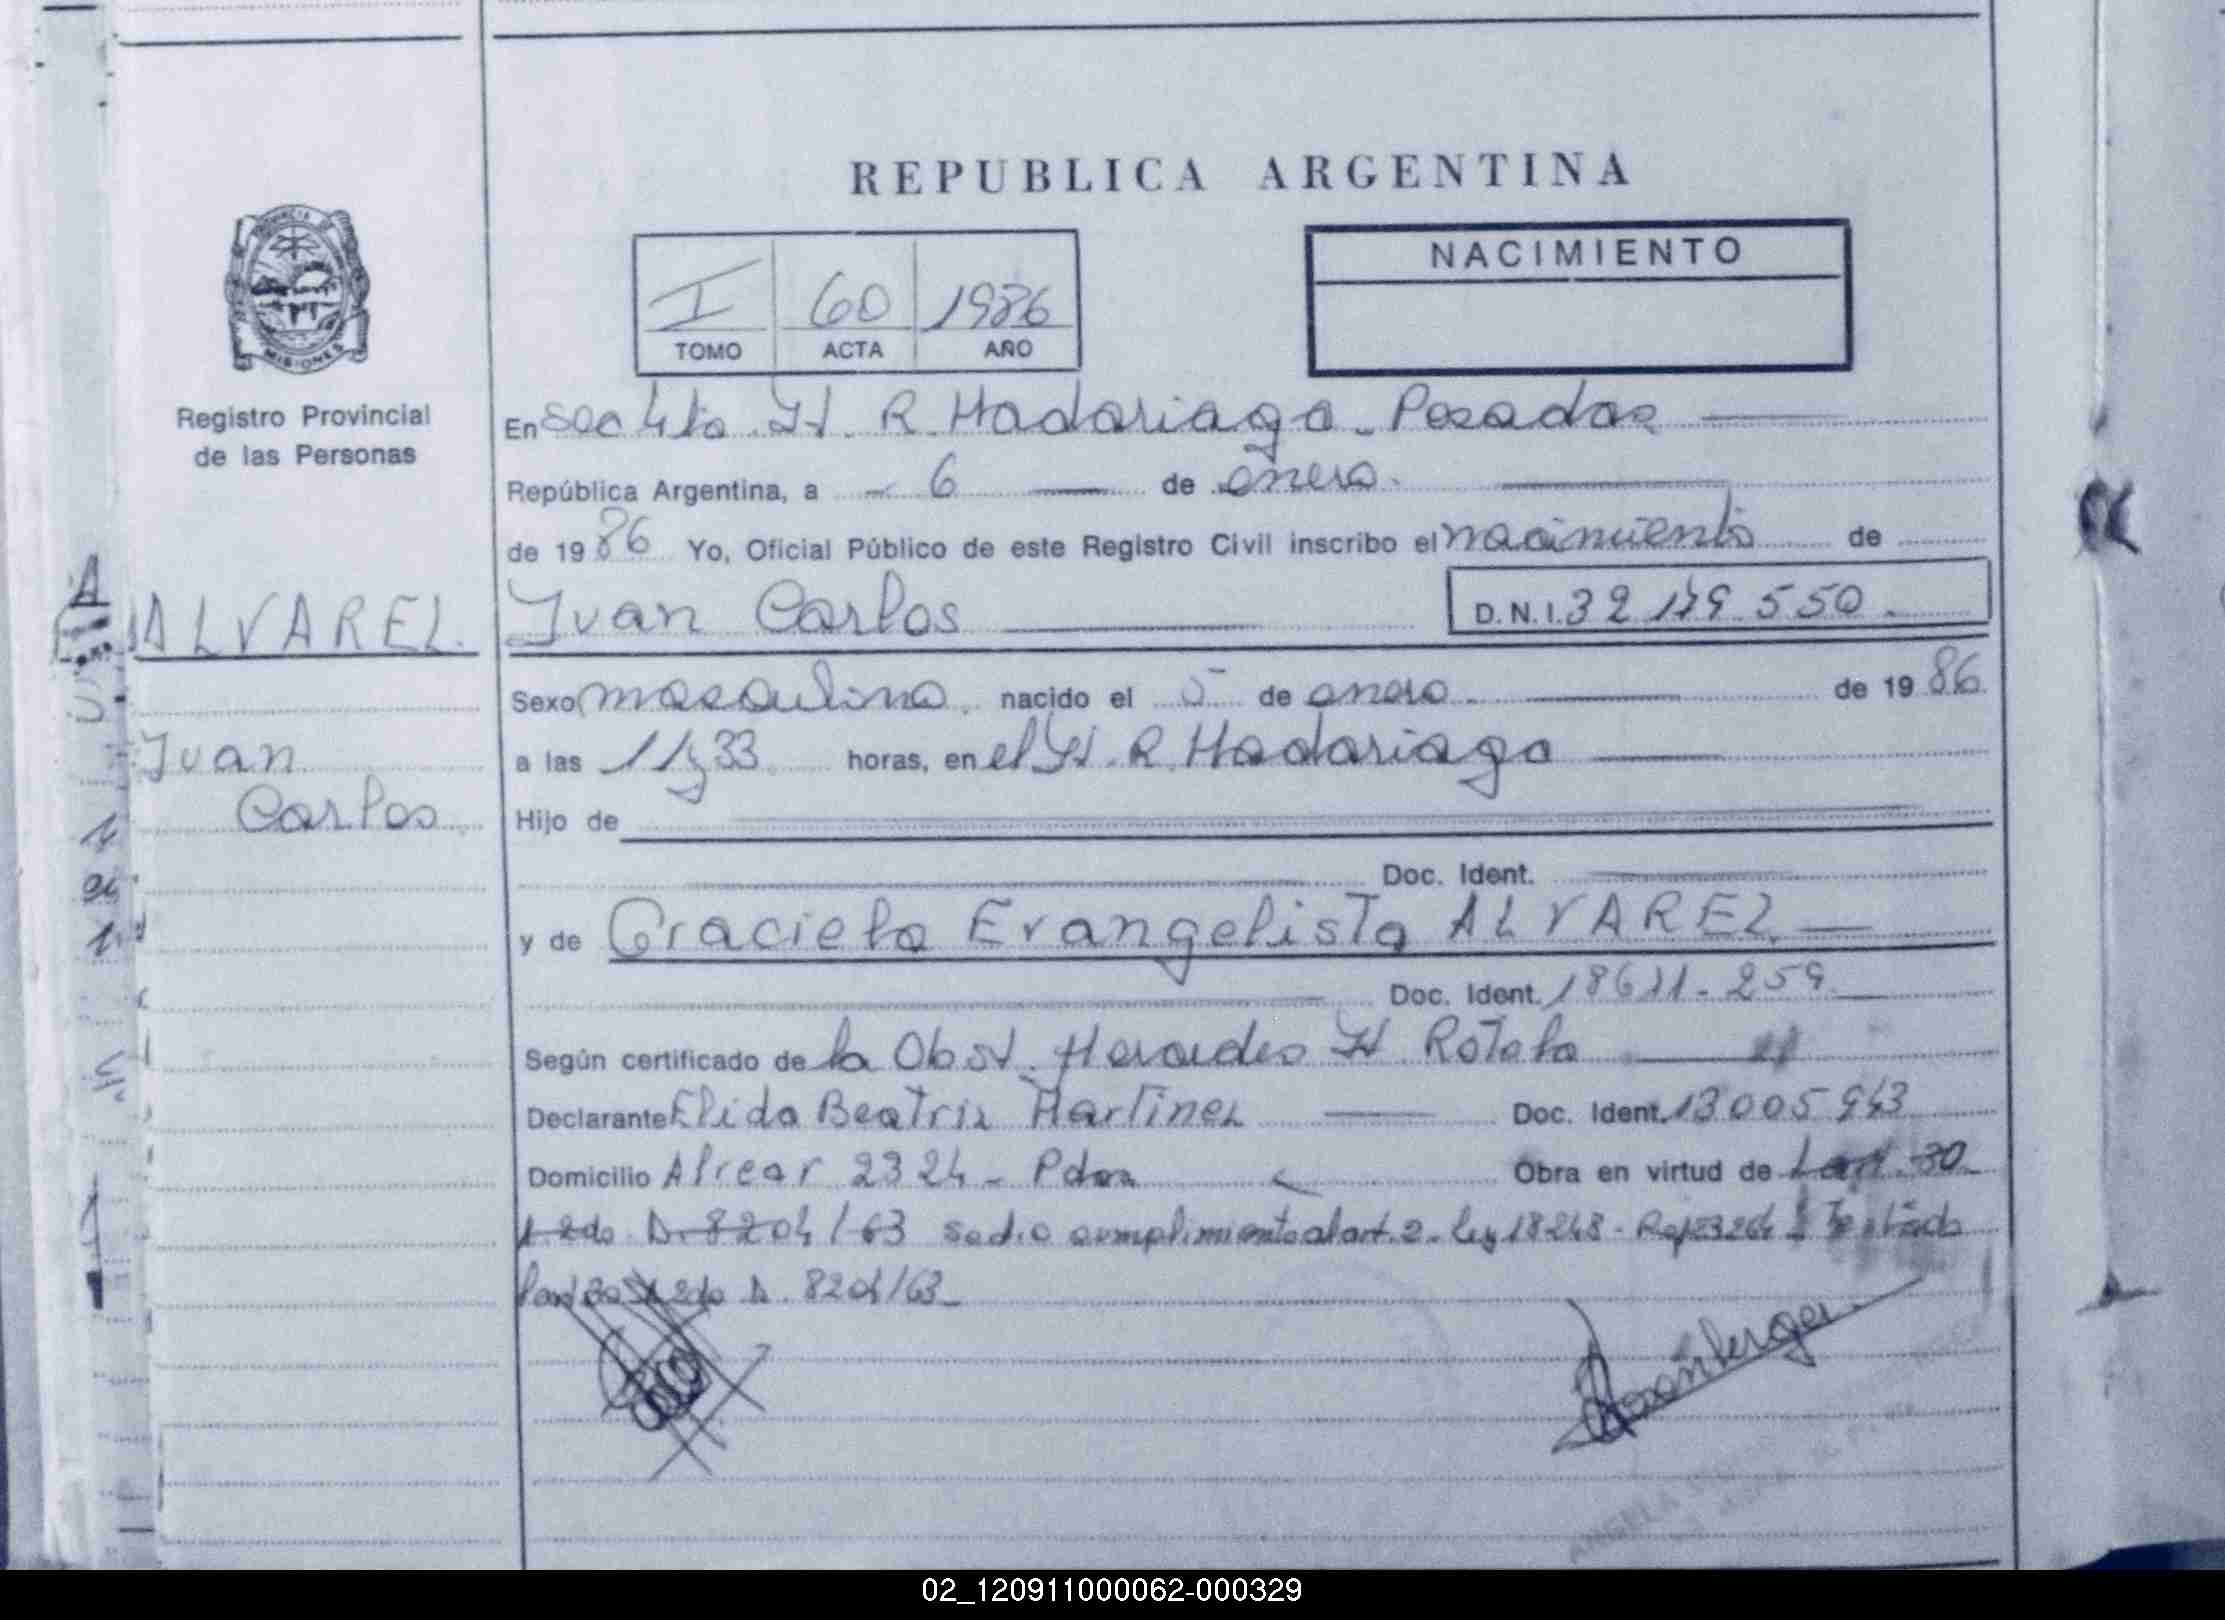 REPUBLICA ARGENTINA
PROVINCIA DE MISIONES
I 60 1986
TOMO ACTA AÑO
NACIMIENTO
Registro Provincial
de las Personas
En Sec 4ta H. R. Madariaga - Posadas
República Argentina, a 6 de enero
de 1986 Yo, Oficial Público de este Registro Civil inscribo el nacimiento de
ALVAREZ
Juan Carlos D.N.I. 32.179.550
Sexo masculino nacido el 5 de enero de 1986
Juan
Carlos
a las 11 y 33 horas, en el H. R. Madariaga
Hijo de
Doc. Ident.
y de Graciela Evangelista ALVAREZ
Doc. Ident. 18611.259
Según certificado de la Obst. H Rotela
Declarante Elida Beatriz Martinez Doc. Ident. 13005943
Domicilio Alvear 2324 - Pdas Obra en virtud de art. 30
2do D. 8204/63 se dio cumplimiento al art. 2 - ley 18248 - Testado
art 30 2do D. 8204/63
ANGELA
02_120911000062-000329